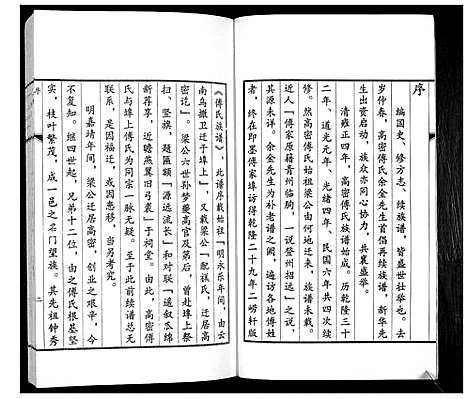 序
编国史、修方志、续族谱，皆盛世壮举也。去
岁仲春，余金先生为高密傅氏再续族谱，新华先
生出资启动，族众亦同心协力，共襄盛举。
清雍正四年，高密傅氏族谱始成。历乾隆三十
二年、道光元年、光绪四年、民国六年共四次续
修。然高密傅氏始祖梁公由何地迁来，族谱未载。
近人一说「傅家原籍青州临朐，一说登州招远」之说，
其源未详。余金先生为补老谱之阙，遍访各地傅姓
者，终在即墨傅家埠访得乾隆二十九年二崂轩版
《傅氏族谱》，此谱序载始祖「明永乐年间，由云
南乌撒卫迁于埠上」，又载梁公「配祺氏，迁居高
密讫」。梁公六世孙梦夔高官及第后，曾赴埠上祭
扫、竖族，题匾额「源远流长」和对联「遥叙瓜绵
新荐享，近瞻燕翼旧弓裘」于祠堂。由此，高密傅
氏与埠上傅氏为同宗一脉无疑。至于此前续谱总无
联系，是因福迁，或因患移，当另考究。
明嘉靖年间，梁公迁居高密，创业之艰辛，今
不复知。继四世起，兄弟十二位，由之傅氏根基坚
实，枝叶繁茂，成一邑之名门望族。其先祖钟秀
二